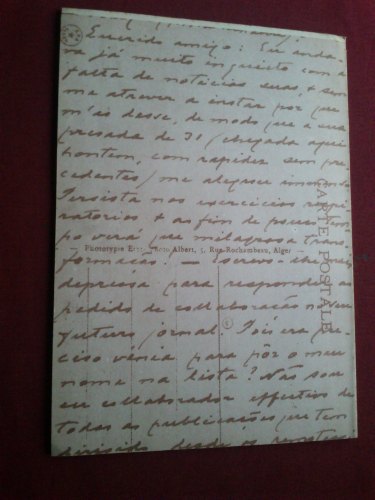 Querido amigo: Eu anda-
va já muito inquieto com a
falta de noticias suas, e sem
me atrever a instar por que
m'as desse, de modo que a sua
presada de 31 (chegada aqui
hontem, com rapidez sem pre-
cedentes) me alegrou immenso
Persista nos exercicios respi-
ratorios e ao fim de pouco tem-
po verá que milagrosa trans-
formação. — Escrevo-lhe mais
depressa para responder ao
pedido de collaboração no seu
futuro jornal. Pois era pre-
ciso vénia para pôr o meu
nome na lista? Não sou
eu collaborador effectivo de
todas as publicações que tem
dirigido desde os
CARTE POSTALE
Phototypie Albert, 5, Rue Rochambeau, Alger